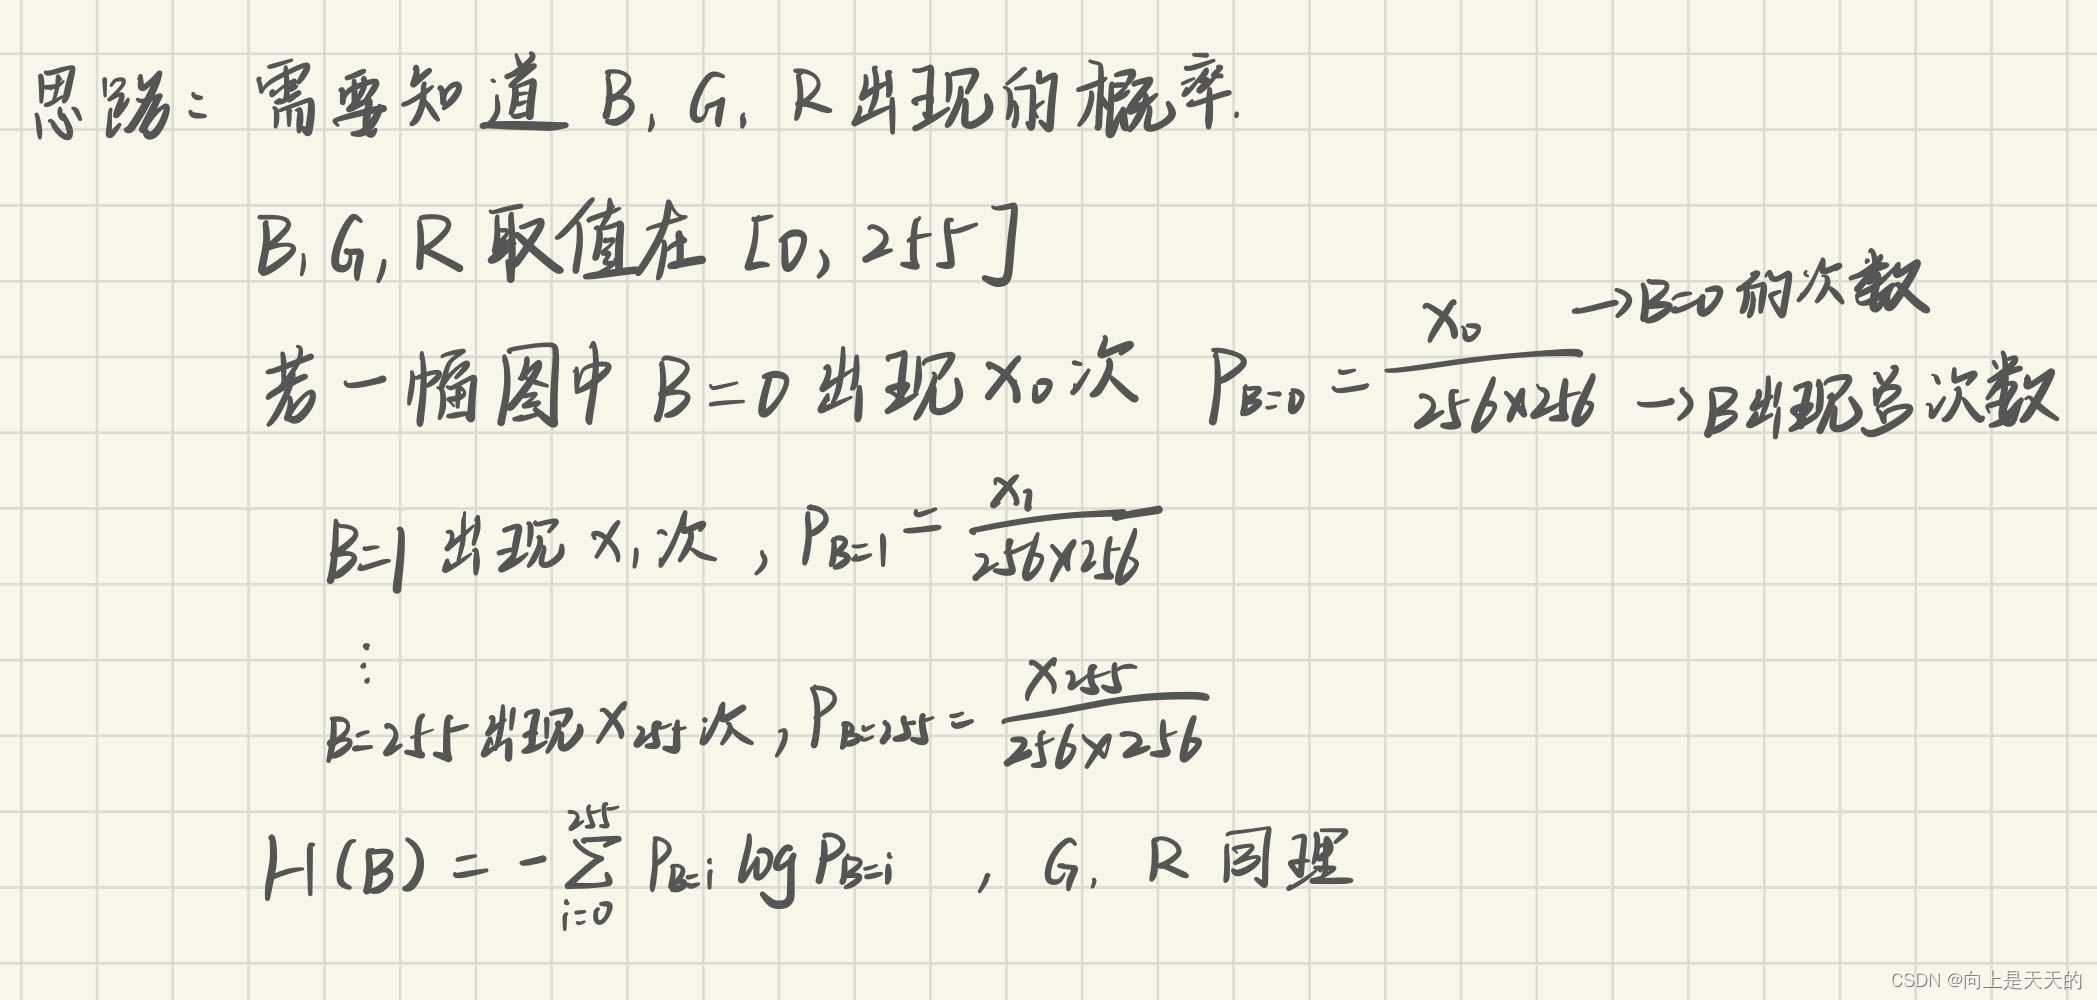 思路：需要知道 B, G, R 出现的概率.
B, G, R 取值在 [0, 255]
若一幅图中 B=0 出现 X₀ 次 P_{B=0} = X₀ / 256×256
→B=0 的次数
→B出现总次数
B=1 出现 X₁ 次, P_{B=1} = X₁ / 256×256
⋮
B=255 出现 X₂₅₅ 次, P_{B=255} = X₂₅₅ / 256×256
H(B) = -∑_{i=0}^{255} P_{B=i} log P_{B=i} , G, R 同理
CSDN @向上是天天的